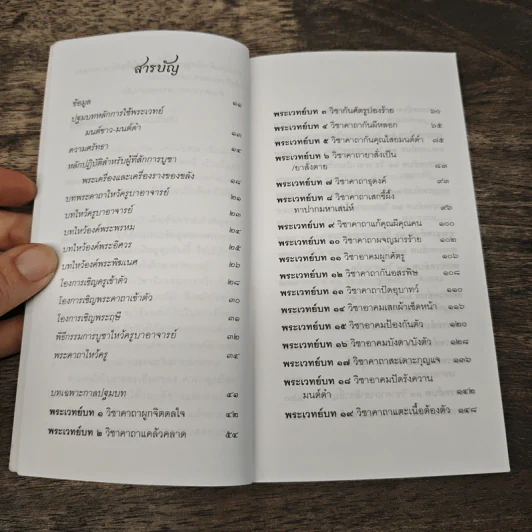 สารบัญ
ข้อมูล ๑๑
ปฐมบทหลักการใช้พระเวทย์
มนต์ขาว-มนต์ดำ ๑๓
ความศรัทธา ๑๔
หลักปฏิบัติสำหรับผู้ที่สักการบูชา
พระเครื่องและเครื่องรางของขลัง ๑๘
บทพระคาถาไหว้ครูบาอาจารย์ ๒๑
บทไหว้ครูบาอาจารย์ ๒๓
บทไหว้องค์พระพรหม ๒๔
บทไหว้องค์พระอิศวร ๒๕
บทไหว้องค์พระพิฆเนศ ๒๖
โองการเชิญครูเข้าตัว ๒๘
โองการเชิญพระคาถาเข้าตัว ๓๐
โองการเชิญพระฤๅษี ๓๑
พิธีกรรมการบูชาไหว้ครูบาอาจารย์ ๓๒
พระคาถาไหว้ครู ๓๔
บทเฉพาะกาลปฐมบท ๔๑
พระเวทย์บท ๑ วิชาคาถาผูกจิตดลใจ ๔๒
พระเวทย์บท ๒ วิชาคาถาแคล้วคลาด ๕๔
พระเวทย์บท ๓ วิชากันศัตรูปองร้าย
พระเวทย์บท ๔ วิชาคาถากันผีหลอก ๖๕
พระเวทย์บท ๕ วิชาคาถากันคุณไสยมนต์ดำ ๗๕
พระเวทย์บท ๖ วิชาคาถายาสั่งเป็น
/ยาสั่งตาย ๘๓
พระเวทย์บท ๗ วิชาคาถาธุดงค์
พระเวทย์บท ๘ วิชาคาถาเสกขี้ผึ้ง
ทาปากมหาเสน่ห์ ๙๖
พระเวทย์บท ๙ วิชาคาถาแก้คุณผีคุณคน ๑๐๐
พระเวทย์บท ๑๐ วิชาคาถาผจญมารร้าย ๑๐๒
พระเวทย์บท ๑๑ วิชาอาคมผูกศัตรู ๑๐๖
พระเวทย์บท ๑๒ วิชาคาถากันอสรพิษ ๑๐๘
พระเวทย์บท ๑๓ วิชาคาถาปัดอุบาทว์ ๑๑๐
พระเวทย์บท ๑๔ วิชาอาคมเสกผ้าเช็ดหน้า ๑๑๖
พระเวทย์บท ๑๕ วิชาอาคมป้องกันตัว ๑๒๐
พระเวทย์บท ๑๖ วิชาอาคมบังตา/บังตัว ๑๒๘
พระเวทย์บท ๑๗ วิชาคาถาสะเดาะกุญแจ ๑๓๖
พระเวทย์บท ๑๘ วิชาอาคมปัดรังควาน
มนต์ดำ ๑๔๒
พระเวทย์บท ๑๙ วิชาคาถาแตะเนื้อต้องตัว ๑๔๘